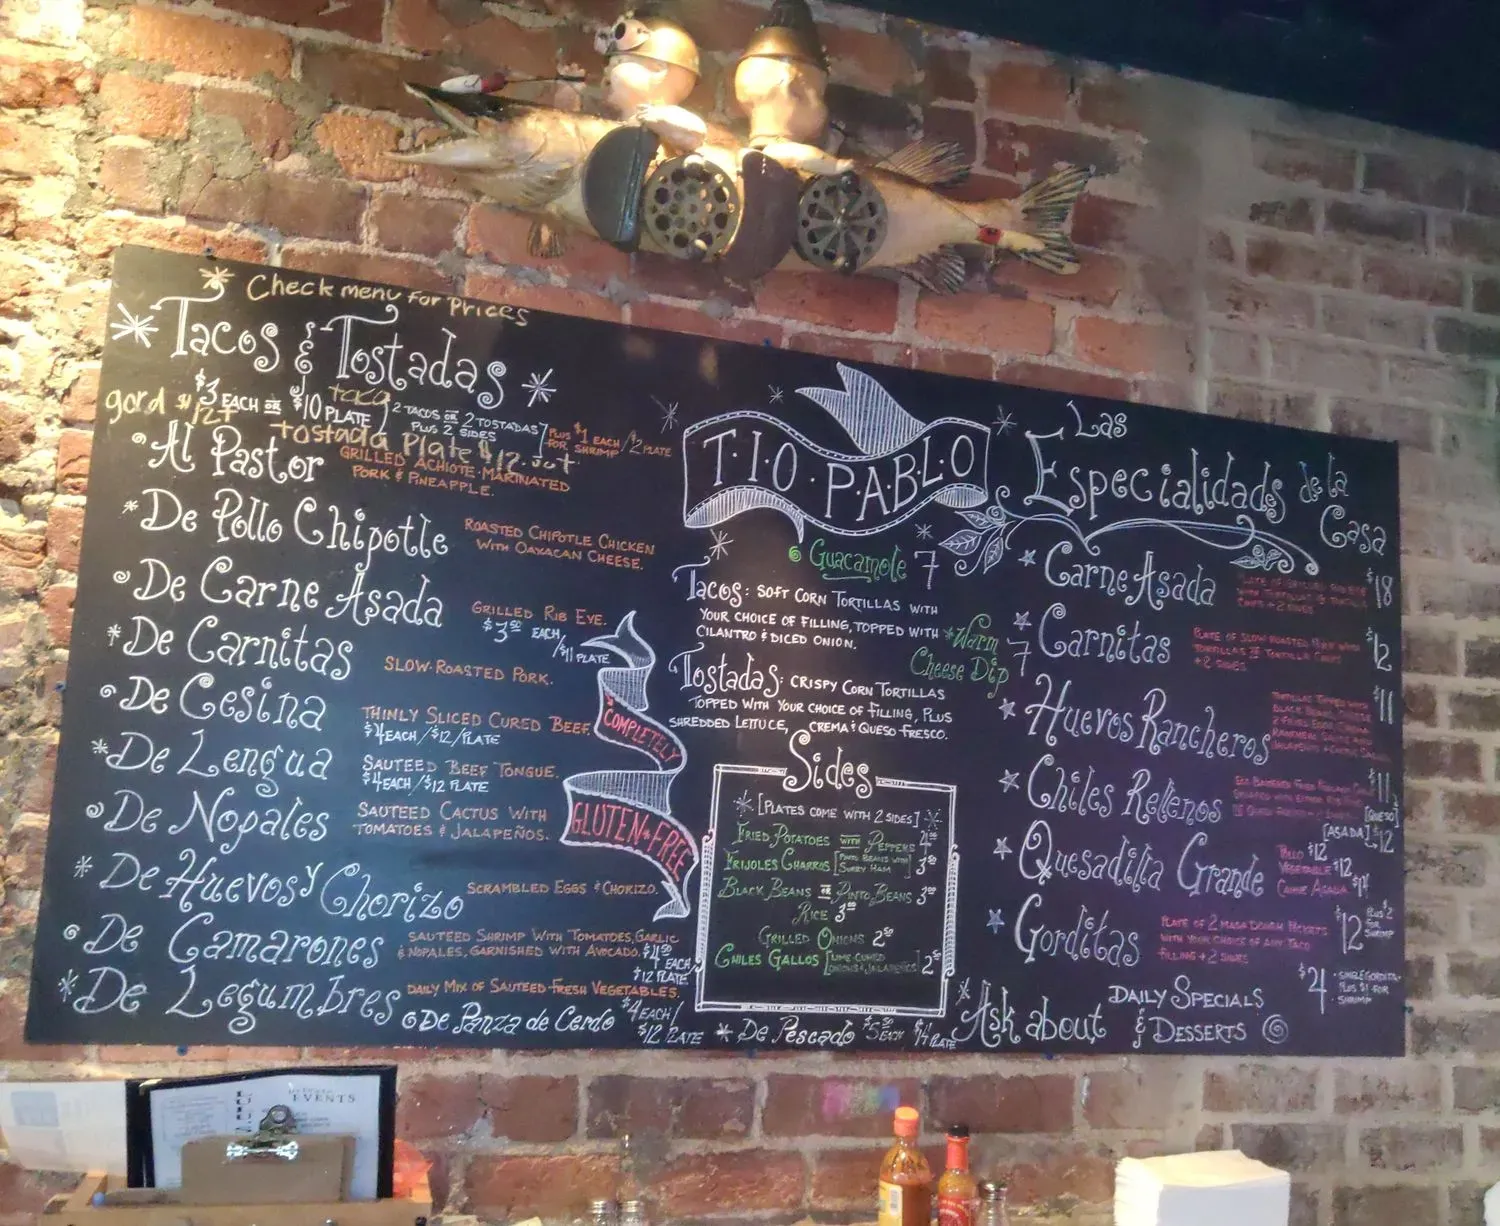 Check menu for Prices
Tacos & Tostadas
$3 EACH OR $10 PLATE
taco
2 TACOS OR 2 TOSTADAS
PLUS 2 SIDES
PLUS $1 EACH / $2 PLATE
FOR SHRIMP
gord
tostada Plate $12
Al Pastor
GRILLED ACHIOTE-MARINATED
PORK & PINEAPPLE.
De Pollo Chipotle
ROASTED CHIPOTLE CHICKEN
WITH OAXACAN CHEESE.
De Carne Asada
GRILLED RIB EYE.
$3.50 EACH
/$11 PLATE
De Carnitas
SLOW-ROASTED PORK.
De Cesina
THINLY SLICED CURED BEEF.
$4 EACH/$12/PLATE
De Lengua
SAUTEED BEEF TONGUE.
$4 EACH/$12 PLATE
De Nopales
SAUTEED CACTUS WITH
TOMATOES & JALAPEÑOS.
De Huevos y Chorizo
SCRAMBLED EGGS & CHORIZO.
De Camarones
SAUTEED SHRIMP WITH TOMATOES, GARLIC
& NOPALES, GARNISHED WITH AVOCADO. $4.50
EACH
$12 PLATE
De Legumbres
DAILY MIX OF SAUTEED FRESH VEGETABLES.
De Panza de Cerdo
$4 EACH/
$12 PLATE
De Pescado $5.50 EACH $14 PLATE
COMPLETELY
GLUTEN-FREE
T·I·O·P·A·B·L·O
Guacamole 7
Tacos: SOFT CORN TORTILLAS WITH
YOUR CHOICE OF FILLING, TOPPED WITH
CILANTRO & DICED ONION.
Warm
Cheese Dip 7
Tostadas: CRISPY CORN TORTILLAS
TOPPED WITH YOUR CHOICE OF FILLING, PLUS
SHREDDED LETTUCE, CREMA & QUESO FRESCO.
Sides
[PLATES COME WITH 2 SIDES]
FRIED POTATOES WITH PEPPERS
FRIJOLES CHARROS [PINTO BEANS WITH
SURRY HAM] 3.50
BLACK BEANS OR PINTO BEANS 3.00
RICE 3.00
GRILLED ONIONS 2.50
CHILES GALLOS [LIME-CURED
ONIONS & JALAPEÑOS] 2.50
Las
Especialidades de la
Casa
Carne Asada
$18
Carnitas
PLATE OF SLOW-ROASTED PORK WITH
TORTILLAS OR TORTILLA CHIPS
+ 2 SIDES.
$12
Huevos Rancheros
$11
Chiles Rellenos
$11
[QUESO]
[ASADA] $12
Quesadilla Grande
POLLO $12
VEGETABLE $12
CARNE ASADA $14
Gorditas
PLATE OF 2 MASA DOUGH POCKETS
WITH YOUR CHOICE OF ANY TACO
FILLING + 2 SIDES
$12
PLUS $2
FOR
SHRIMP
$4
SINGLE GORDITA
PLUS $1 FOR
SHRIMP
Ask about DAILY SPECIALS
& DESSERTS
EVENTS